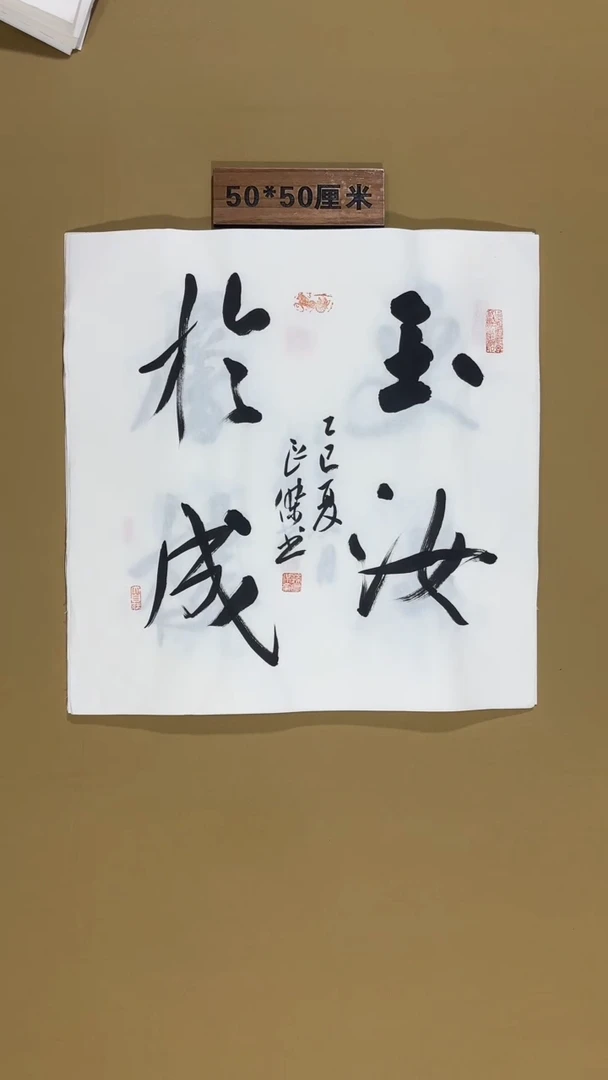 50*50厘米
玉汝
於成
乙巳夏
傑书